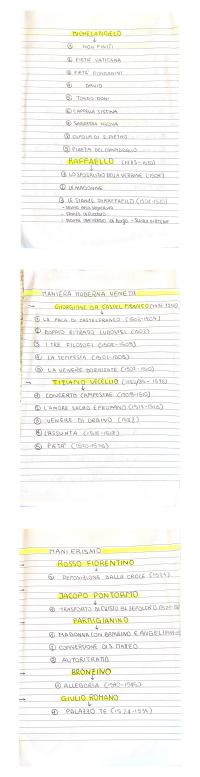 MICHELANGELO
① NON FINITI
② PIETÀ VATICANA
③ PIETÀ RONDANINI
④ DAVID
⑤ TONDO DONI
⑥ CAPPELLA SISTINA
⑦ SAGRESTIA NUOVA
⑧ CUPOLA DI S. PIETRO
⑨ PIAZZA DEL CAMPIDOGLIO
RAFFAELLO (1483-1520)
① LO SPOSALIZIO DELLA VERGINE (1504)
② LE MADONNE
③ LE STANZE DI RAFFAELLO
- stanza della segnatura
- stanza di Eliodoro
- stanza dell'incendio di Borgo
MANIERA MODERNA VENETA
→ GIORGIONE DA CASTELFRANCO
① LA PALA DI CASTELFRANCO
② DOPPIO RITRATTO LUDOVISI (1502)
③ I TRE FILOSOFI
④ LA TEMPESTA
⑤ LA VENERE DORMIENTE
→ TIZIANO VECELLIO
① CONCERTO CAMPESTRE
② L'AMORE SACRO E PROFANO
③ VENERE DI URBINO (1538)
④ L'ASSUNTA (1516-1518)
⑤ PIETÀ (1570-1576)
MANIERISMO
→ ROSSO FIORENTINO
① DEPOSIZIONE DALLA CROCE (1521)
→ JACOPO PONTORMO
① TRASPORTO DI CRISTO AL SEPOLCRO
→ PARMIGIANINO
① MADONNA CON BAMBINO E ANGELI
② CONVERSIONE DI S. PAOLO
③ AUTORITRATTO
→ BRONZINO
① ALLEGORIA (1540-1545)
→ GIULIO ROMANO
① PALAZZO TE